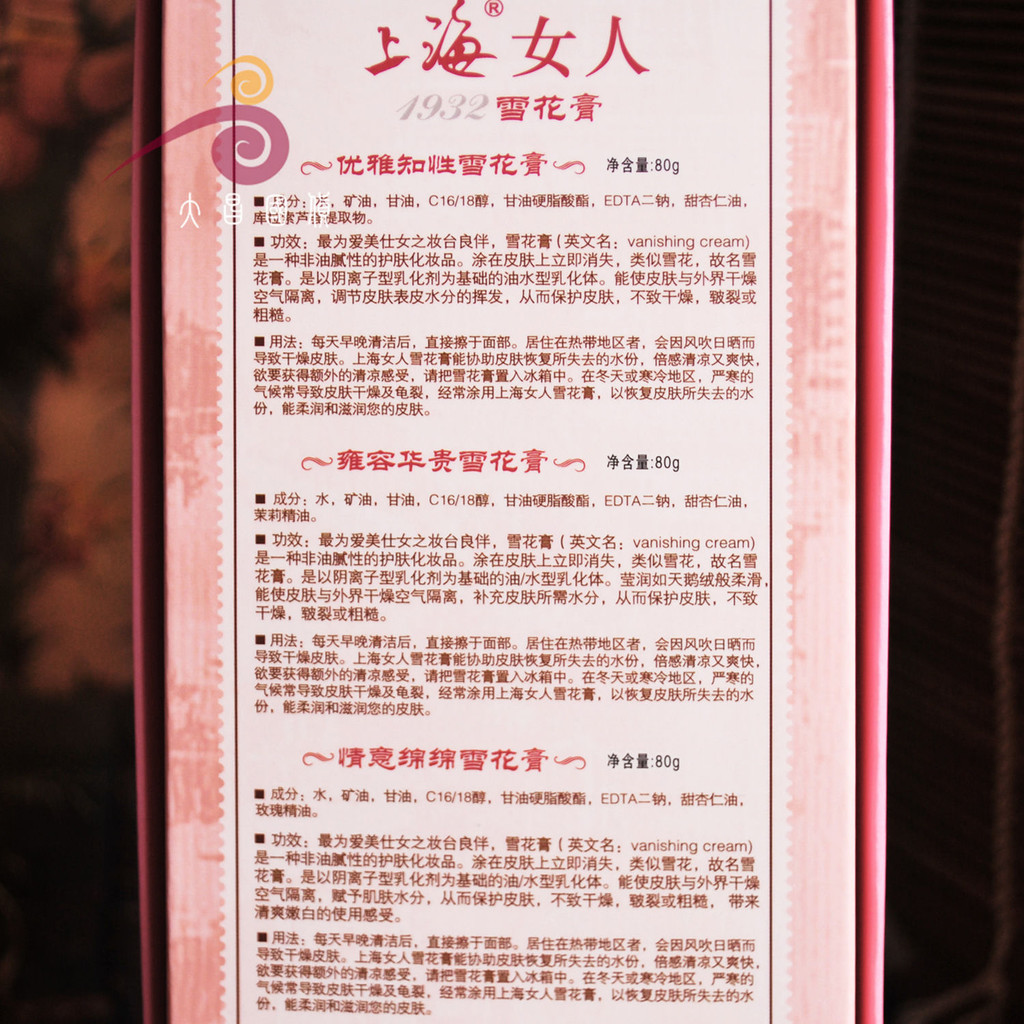 上海®女人
1932雪花膏
优雅知性雪花膏 净含量:80g
■ 成分：水，矿油，甘油，C16/18醇，甘油硬脂酸酯，EDTA二钠，甜杏仁油，
库拉索芦荟提取物。
■ 功效：最为爱美仕女之妆台良伴，雪花膏（英文名：vanishing cream)
是一种非油腻性的护肤化妆品。涂在皮肤上立即消失，类似雪花，故名雪
花膏。是以阴离子型乳化剂为基础的油水型乳化体。能使皮肤与外界干燥
空气隔离，调节皮肤表皮水分的挥发，从而保护皮肤，不致干燥，皲裂或
粗糙。
■ 用法：每天早晚清洁后，直接擦于面部。居住在热带地区者，会因风吹日晒而
导致干燥皮肤。上海女人雪花膏能协助皮肤恢复所失去的水份，倍感清凉又爽快，
欲要获得额外的清凉感受，请把雪花膏置入冰箱中。在冬天或寒冷地区，严寒的
气候常导致皮肤干燥及龟裂，经常涂用上海女人雪花膏，以恢复皮肤所失去的水
份，能柔润和滋润您的皮肤。
雍容华贵雪花膏 净含量:80g
■ 成分：水，矿油，甘油，C16/18醇，甘油硬脂酸酯，EDTA二钠，甜杏仁油，
茉莉精油。
■ 功效：最为爱美仕女之妆台良伴，雪花膏（英文名：vanishing cream)
是一种非油腻性的护肤化妆品。涂在皮肤上立即消失，类似雪花，故名雪
花膏。是以阴离子型乳化剂为基础的油/水型乳化体。莹润如天鹅绒般柔滑，
能使皮肤与外界干燥空气隔离，补充皮肤所需水分，从而保护皮肤，不致
干燥，皲裂或粗糙。
■ 用法：每天早晚清洁后，直接擦于面部。居住在热带地区者，会因风吹日晒而
导致干燥皮肤。上海女人雪花膏能协助皮肤恢复所失去的水份，倍感清凉又爽快，
欲要获得额外的清凉感受，请把雪花膏置入冰箱中。在冬天或寒冷地区，严寒的
气候常导致皮肤干燥及龟裂，经常涂用上海女人雪花膏，以恢复皮肤所失去的水
份，能柔润和滋润您的皮肤。
情意绵绵雪花膏 净含量:80g
■ 成分：水，矿油，甘油，C16/18醇，甘油硬脂酸酯，EDTA二钠，甜杏仁油，
玫瑰精油。
■ 功效：最为爱美仕女之妆台良伴，雪花膏（英文名：vanishing cream)
是一种非油腻性的护肤化妆品。涂在皮肤上立即消失，类似雪花，故名雪
花膏。是以阴离子型乳化剂为基础的油/水型乳化体。能使皮肤与外界干燥
空气隔离，赋予肌肤水分，从而保护皮肤，不致干燥，皲裂或粗糙，带来
清爽嫩白的使用感受。
■ 用法：每天早晚清洁后，直接擦于面部。居住在热带地区者，会因风吹日晒而
导致干燥皮肤。上海女人雪花膏能协助皮肤恢复所失去的水份，倍感清凉又爽快，
欲要获得额外的清凉感受，请把雪花膏置入冰箱中。在冬天或寒冷地区，严寒的
气候常导致皮肤干燥及龟裂，经常涂用上海女人雪花膏，以恢复皮肤所失去的水
份，能柔润和滋润您的皮肤。